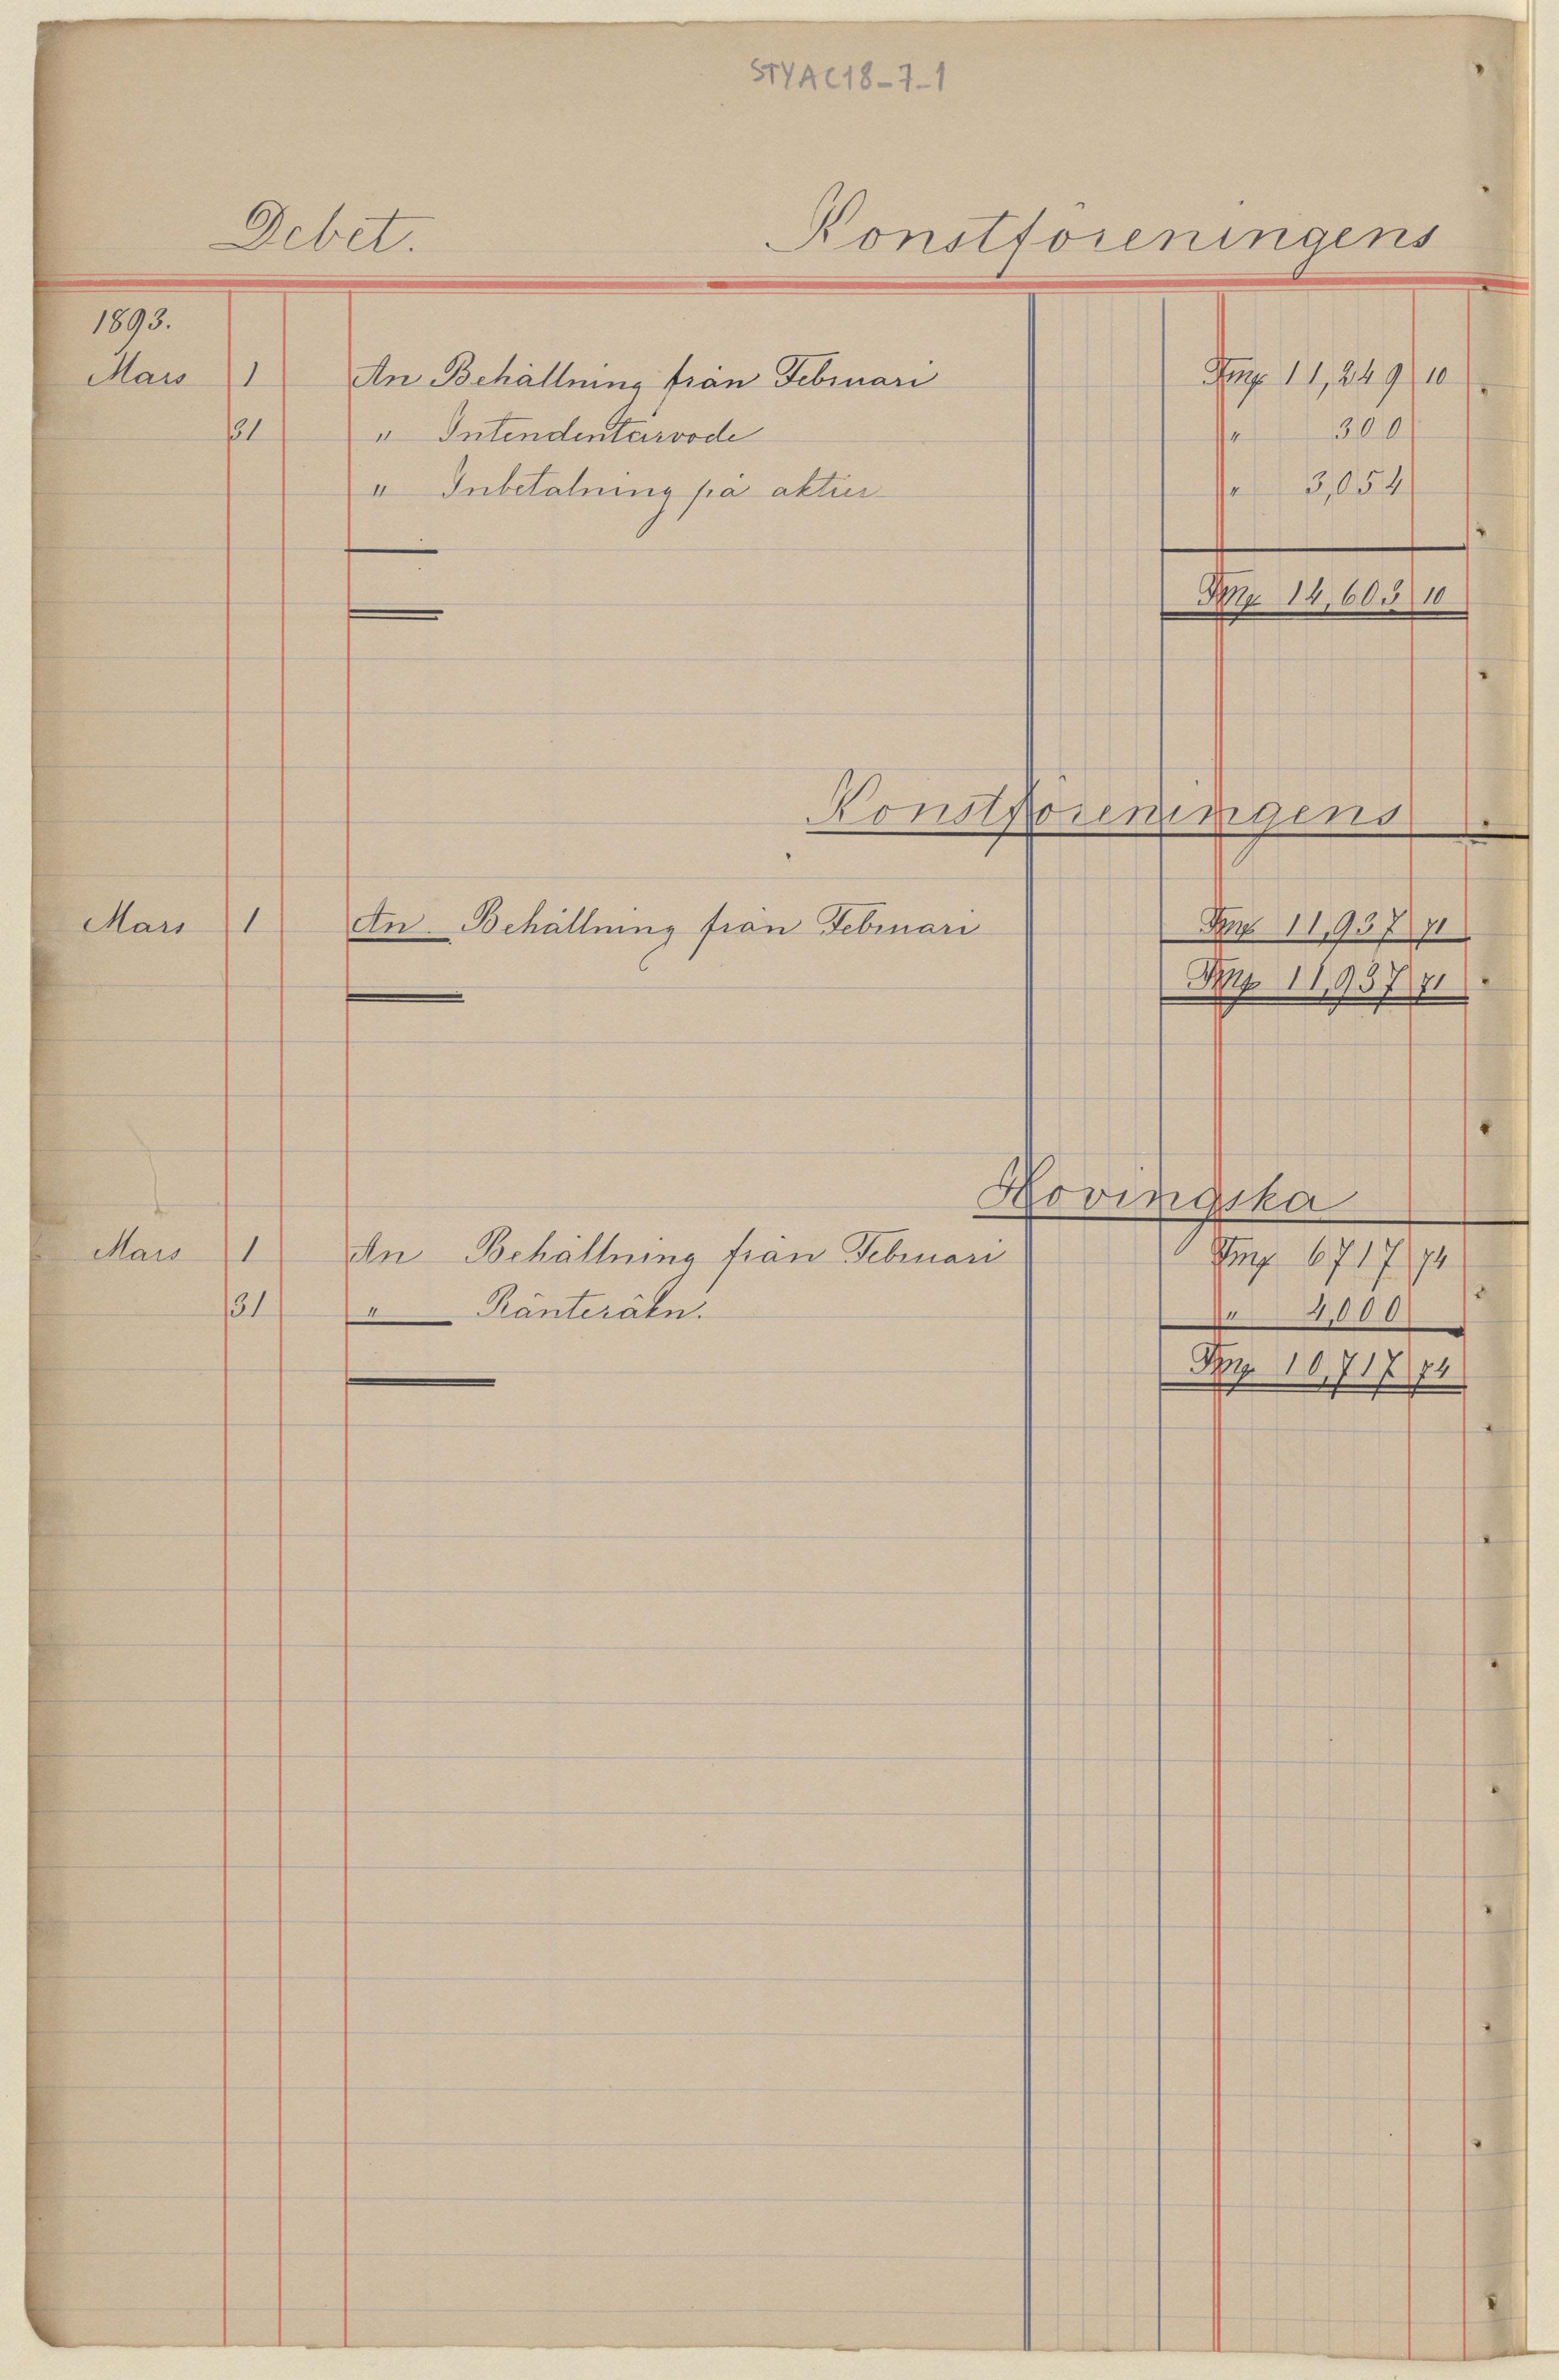 STYAC18-7-1
Debet. Konstföreningens
1893.
Mars 1 An Behållning från Februari Fmg 11,249 10
31 " Intendentarvode " 300
" Inbetalning på aktier " 3,054
Fmg 14,603 10
Konstföreningens
Mars 1 An Behållning från Februari Fmg 11,937 71
Fmg 11,937 71
Hovingska
Mars 1 An Behållning från Februari Fmg 6717 74
31 " Ränteräkn. " 4,000
Fmg 10,717 74